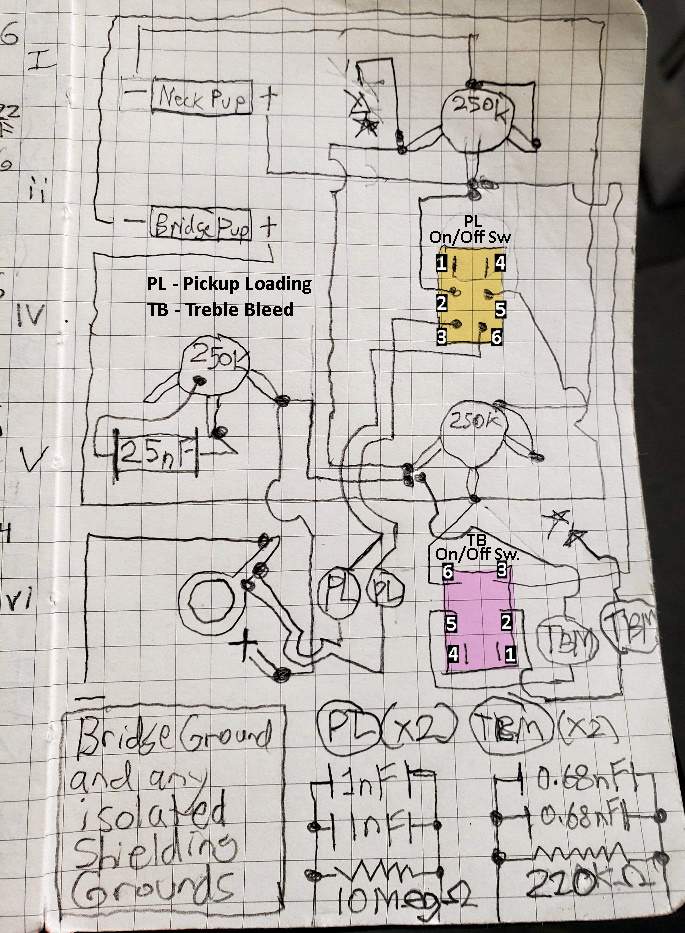 6
I
ii
IV
V
4
vi
— Neck Pup +
250K
— Bridge Pup +
PL
On/Off Sw
1 4
2 5
3 6
PL - Pickup Loading
TB - Treble Bleed
250K
25nF
250K
TB
On/Off Sw.
6 3
5 2
4 1
PL PL
TBM TBM
+
—
Bridge Ground
and any
isolated
Shielding
Grounds
PL (x2) TBM (x2)
1nF
1nF
10MegΩ
0.68nF
0.68nF
220KΩ